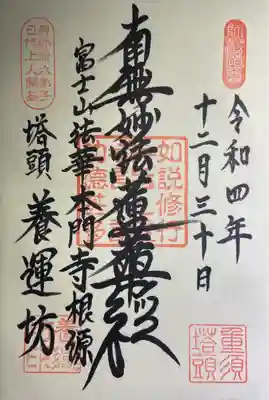 令和四年
十二月三十日
如説修行
功徳甚多
重須
塔頭
南無妙法蓮華経
富士山法華本門寺根源
塔頭 養運坊